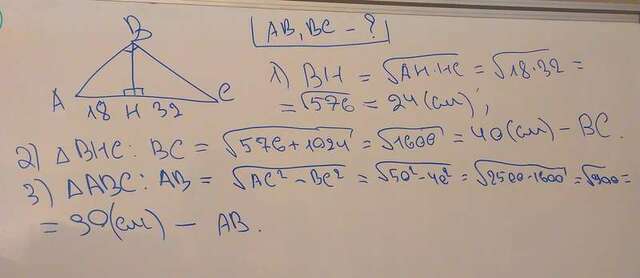 B
AB, BC - ?
A 18 H 32 C
1) BH = √AH·HC = √18·32 =
= √576 = 24(см);
2) △BHC: BC = √576+1024 = √1600 = 40(см) - BC.
3) △ABC: AB = √AC²-BC² = √50²-40² = √2500-1600 = √900 =
= 30(см) - AB.